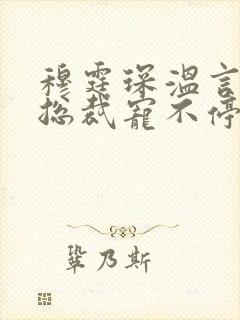 穆霆琛温言
总裁宠不停
巩乃斯